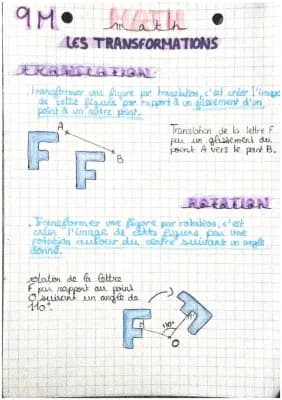 9M
MATH
math
LES TRANSFORMATIONS
TRANSLATION:
Transformer une figure par translation, c'est créer l'image
de cette figure par rapport à un glissement d'un
point à un autre point.
A
B
Translation de la lettre F
par un glissement du
point A vers le point B.
ROTATION
Transformer une figure par rotation, c'est
créer l'image de cette figure par une
rotation autour du centre suivant un angle
donné.
rotation de la lettre
F par rapport au point
O suivant un angle de
110°.
110°
O